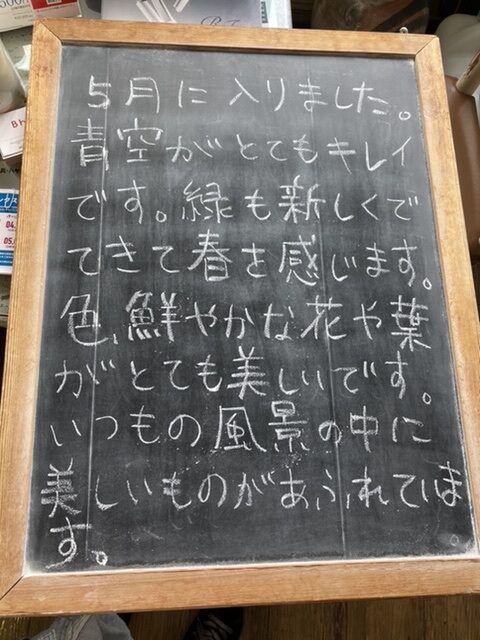 5月に入りました。
青空がとてもキレイ
です。緑も新しくで
てきて春を感じます。
色鮮やかな花や葉
がとても美しいです。
いつもの風景の中に
美しいものがあふれていま
す。